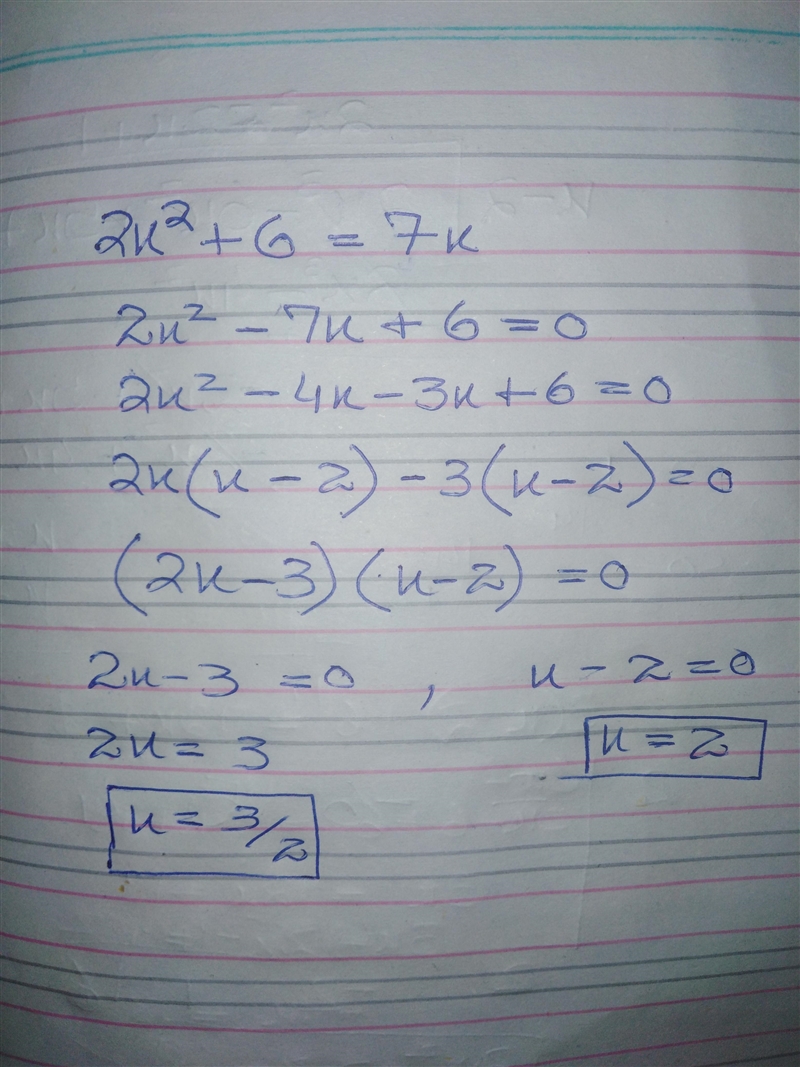 2x² + 6 = 7x
2x² - 7x + 6 = 0
2x² - 4x - 3x + 6 = 0
2x(x - 2) - 3(x - 2) = 0
(2x - 3)(x - 2) = 0
2x - 3 = 0 , x - 2 = 0
2x = 3 x = 2
x = 3/2